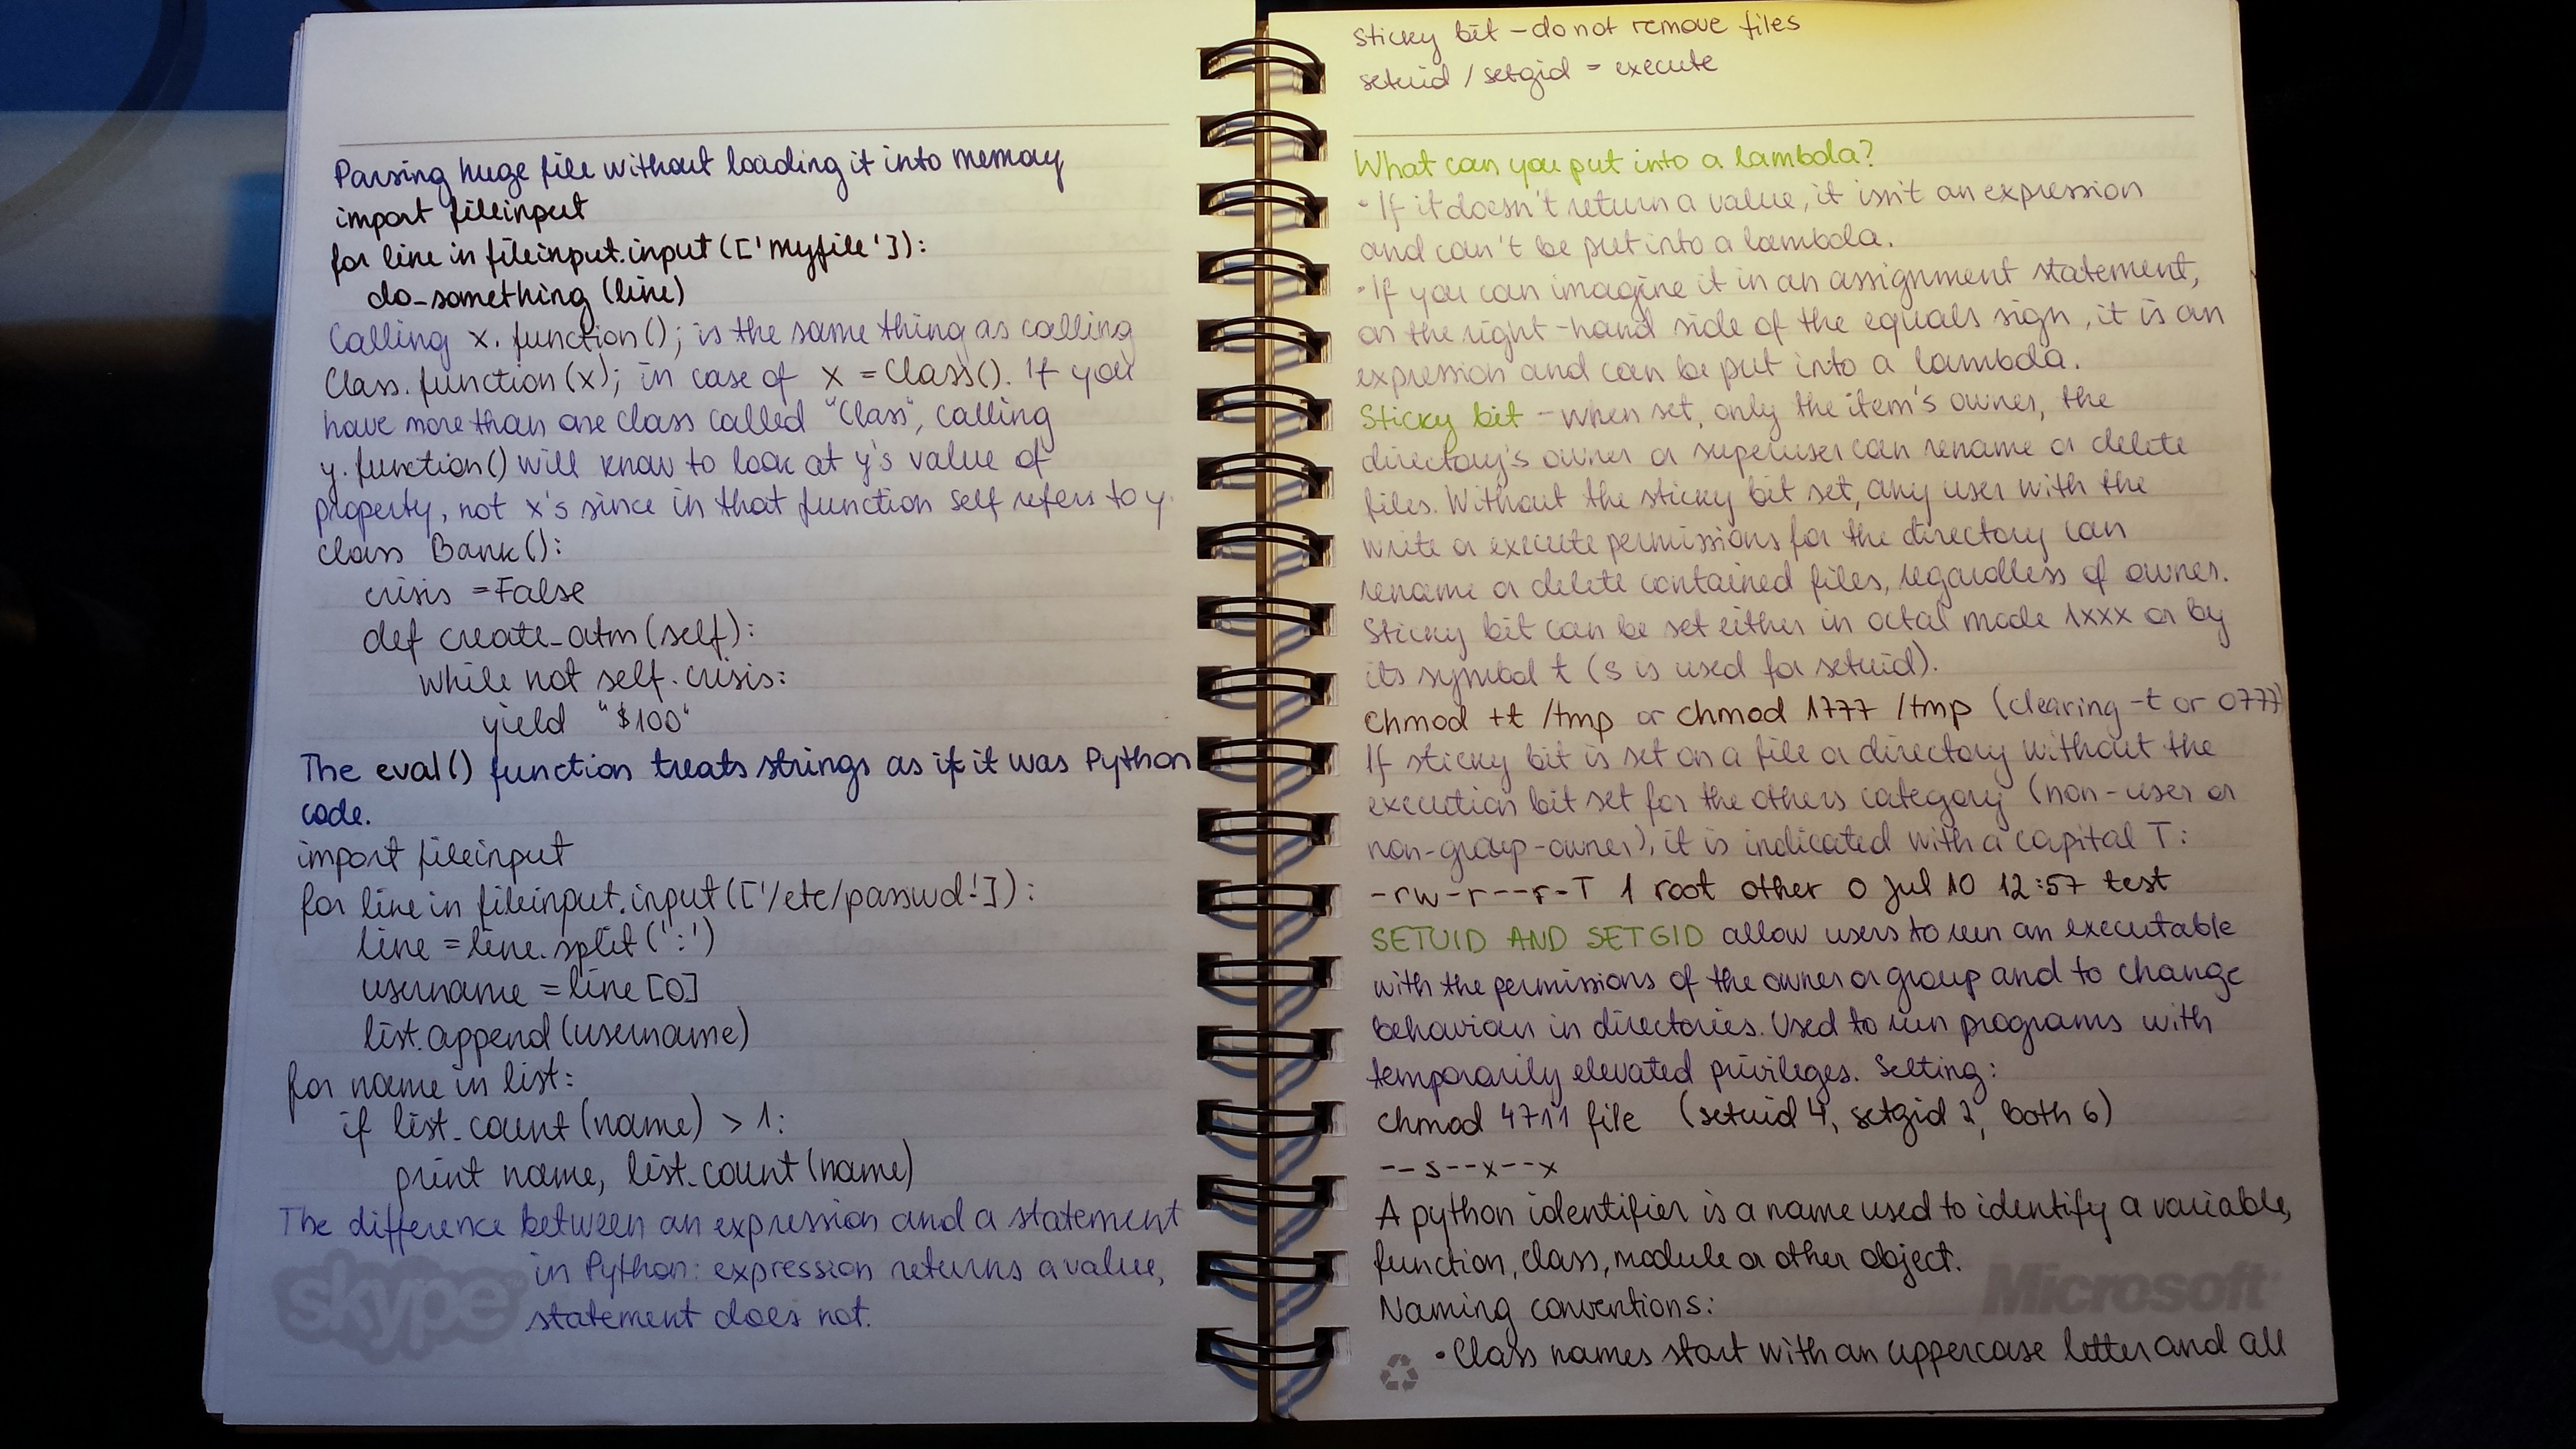 Parsing huge file without loading it into memory
import fileinput
for line in fileinput.input(['myfile']):
do_something(line)
Calling x.function(); is the same thing as calling
Class.function(x); in case of x = Class(). If you
have more than one class called "Class", calling
y.function() will know to look at y's value of
property, not x's since in that function self refers to y.
class Bank():
crisis = False
def create_atm(self):
while not self.crisis:
yield "$100"
The eval() function treats strings as if it was Python
code.
import fileinput
for line in fileinput.input(['/etc/passwd']):
line = line.split(':')
username = line[0]
list.append(username)
for name in list:
if list.count(name) > 1:
print name, list.count(name)
The difference between an expression and a statement
in Python: expression returns a value,
statement does not.
skype
Sticky bit - do not remove files
setuid / setgid = execute
What can you put into a lambda?
• If it doesn't return a value, it isn't an expression
and can't be put into a lambda.
• If you can imagine it in an assignment statement,
on the right-hand side of the equals sign, it is an
expression and can be put into a lambda.
Sticky bit - when set, only the item's owner, the
directory's owner or superuser can rename or delete
files. Without the sticky bit set, any user with the
write or execute permissions for the directory can
rename or delete contained files, regardless of owner.
Sticky bit can be set either in octal mode 1xxx or by
its symbol t (s is used for setuid).
chmod +t /tmp or chmod 1777 /tmp (clearing -t or 0777)
If sticky bit is set on a file or directory without the
execution bit set for the others category (non-user or
non-group-owner), it is indicated with a capital T:
-rw-r--r-T 1 root other 0 Jul 10 12:57 test
SETUID AND SETGID allow users to run an executable
with the permissions of the owner or group and to change
behaviour in directories. Used to run programs with
temporarily elevated privileges. Setting:
chmod 4711 file (setuid 4, setgid 2, both 6)
--s--x--x
A python identifier is a name used to identify a variable,
function, class, module or other object.
Naming conventions:
• Class names start with an uppercase letter and all
Microsoft